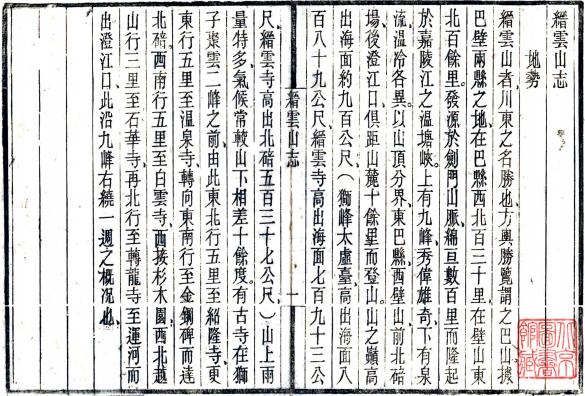 縉雲山志
地勢
縉雲山者川東之名勝也方輿勝覽謂之巴山據
巴壁兩縣之地在巴縣西北百三十里在壁山東
北百餘里發源於劍門山脈綿亘數百里而隆起
於嘉陵江之溫塘峽上有九峰秀偉雄奇下有泉
流溫冷各異以山頂分界東巴縣西壁山前北碚
場後澄江口俱距山麓十餘里而登山山之巔高
出海面約九百公尺（獅峰太虛臺高出海面八
百八十九公尺縉雲寺高出海面七百九十三公
縉雲山志
一
尺縉雲寺高出北碚五百三十七公尺）山上雨
量特多氣候常較山下相差十餘度有古寺在獅
子聚雲二峰之前由此東北行五里至紹隆寺更
東行五里至溫泉寺轉向東南行至金剛碑而達
北碚西南行五里至白雲寺西接杉木園西北越
山行三里至石華寺再北行至轉龍寺至運河而
出澄江口此沿九峰右繞一週之概況也